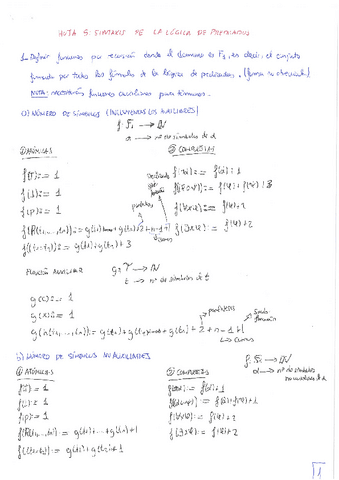 HOJA 5: SINTAXIS DE LA LÓGICA DE PREDICADOS
1. Definir funciones por recursión donde el dominio es F₁, es decir, el conjunto
formado por todas las fórmulas de la lógica de predicados. (forma no abreviada)
NOTA: necesitarás funciones auxiliares para términos.
a) NÚMERO DE SÍMBOLOS (INCLUYENDO LOS AUXILIARES)
f: F₁ → ℕ
α → nº de símbolos de α
① ATÓMICAS
f(⊤):= 1
f(⊥):= 1
f(p):= 1
f(R(t₁,...,tₙ)):= g(t₁)+...+g(tₙ)+2+n-1+1
f((t₁=t₂)):= g(t₁)+g(t₂)+3
② COMPLEJAS
f(¬α):= f(α)+1
f((φ∘ψ)):= f(φ)+f(ψ)+3
f(∀xα):= f(α)+2
f(∃xα):= f(α)+2
paréntesis
comas
FUNCIÓN AUXILIAR
g: T → ℕ
t → nº de símbolos de t
g(c):= 1
g(x):= 1
g(h(t₁,...,tₙ)):= g(t₁)+g(t₂)+...+g(tₙ)+2+n-1+1
paréntesis
símbolo función
comas
b) NÚMERO DE SÍMBOLOS NO AUXILIARES
f: F₁ → ℕ
α → nº de símbolos no auxiliares de α
① ATÓMICAS
f(⊤):= 1
f(⊥):= 1
f(p):= 1
f(R(t₁,...,tₙ)):= g(t₁)+...+g(tₙ)+1
f((t₁=t₂)):= g(t₁)+g(t₂)+1
② COMPLEJAS
f(¬α):= f(α)+1
f(∀xα):= f(α)+2
f(∃xα):= f(α)+2
1